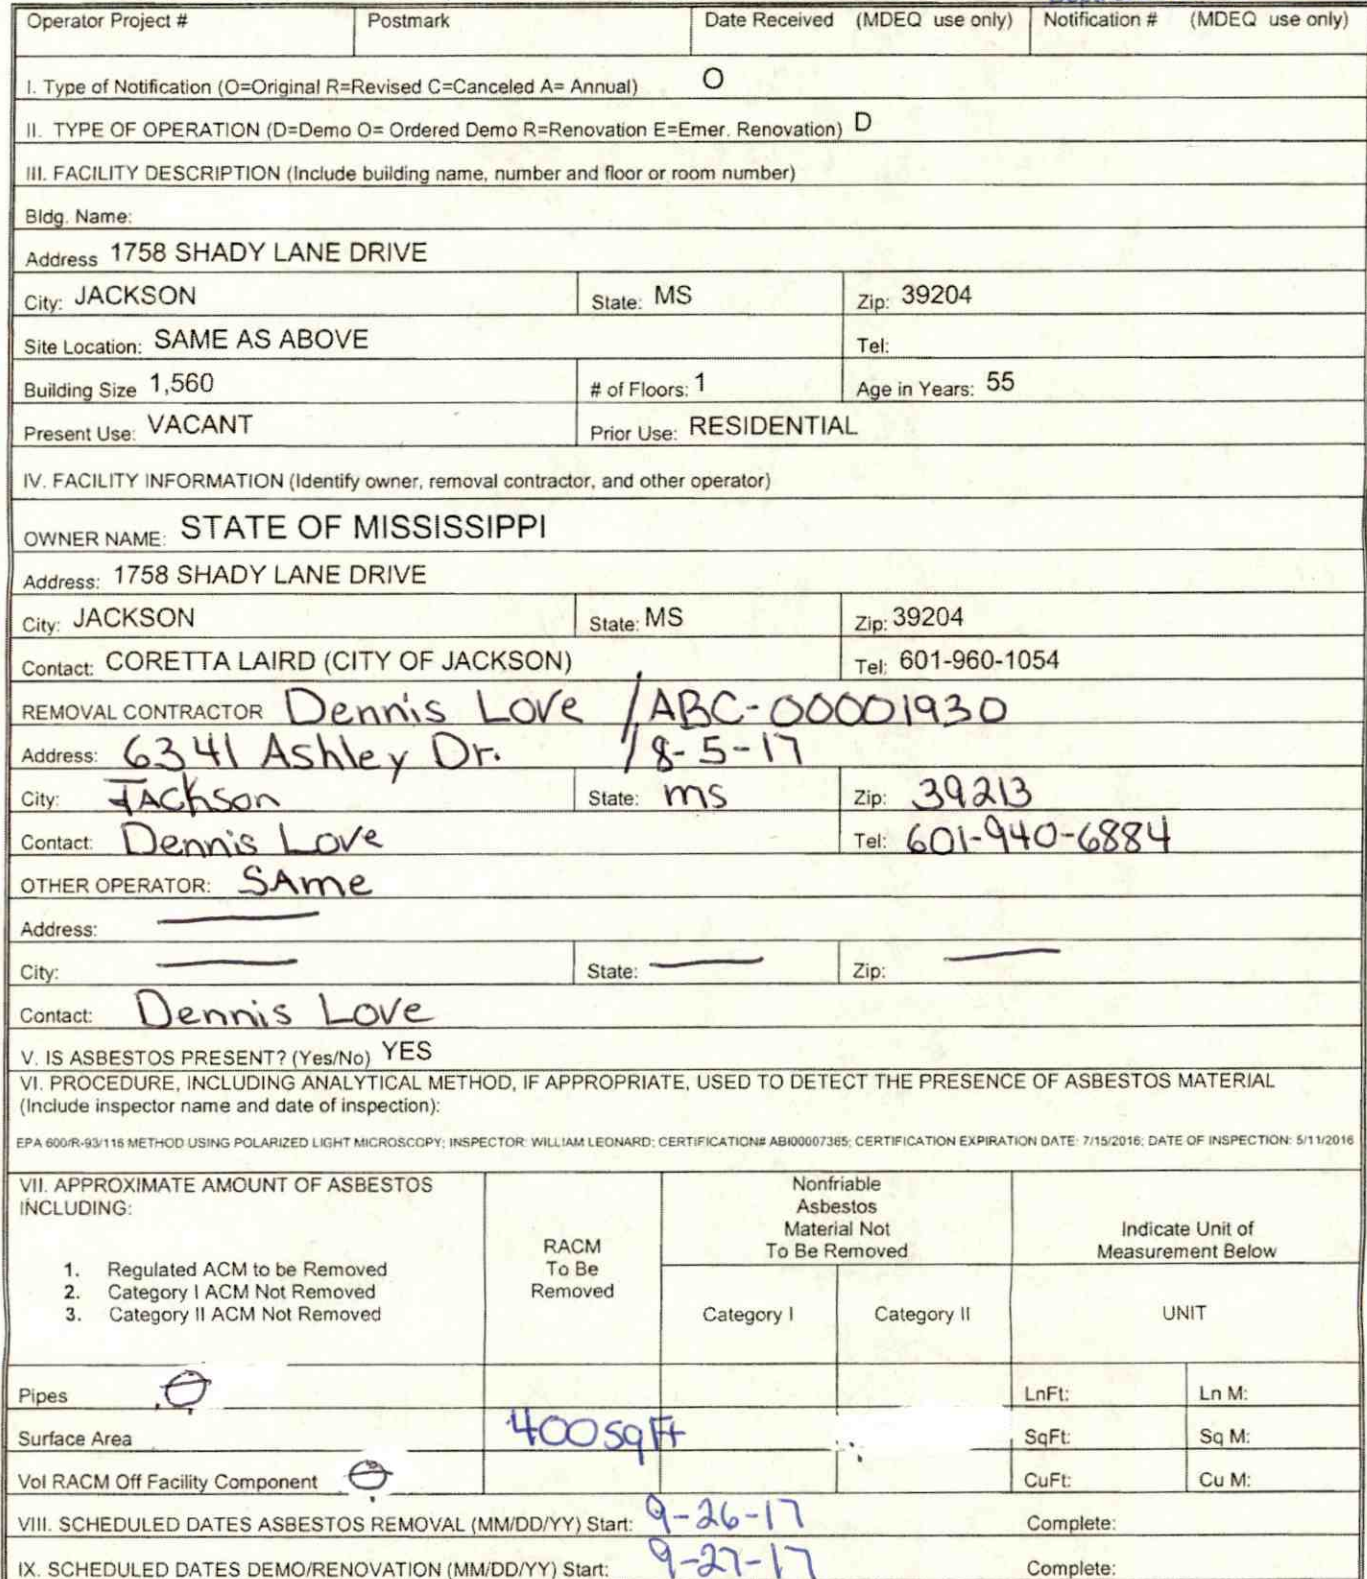 Operator Project # Postmark Date Received (MDEQ use only) Notification # (MDEQ use only)
I. Type of Notification (O=Original R=Revised C=Canceled A= Annual) O
II. TYPE OF OPERATION (D=Demo O= Ordered Demo R=Renovation E=Emer. Renovation) D
III. FACILITY DESCRIPTION (Include building name, number and floor or room number)
Bldg. Name:
Address 1758 SHADY LANE DRIVE
City: JACKSON State: MS Zip: 39204
Site Location: SAME AS ABOVE Tel:
Building Size 1,560 # of Floors: 1 Age in Years: 55
Present Use: VACANT Prior Use: RESIDENTIAL
IV. FACILITY INFORMATION (Identify owner, removal contractor, and other operator)
OWNER NAME: STATE OF MISSISSIPPI
Address: 1758 SHADY LANE DRIVE
City: JACKSON State: MS Zip: 39204
Contact: CORETTA LAIRD (CITY OF JACKSON) Tel: 601-960-1054
REMOVAL CONTRACTOR Dennis Love / ABC-00001930
Address: 6341 Ashley Dr. / 8-5-17
City: JAckson State: ms Zip: 39213
Contact: Dennis Love Tel: 601-940-6884
OTHER OPERATOR: SAme
Address:
City: State: Zip:
Contact: Dennis Love
V. IS ASBESTOS PRESENT? (Yes/No) YES
VI. PROCEDURE, INCLUDING ANALYTICAL METHOD, IF APPROPRIATE, USED TO DETECT THE PRESENCE OF ASBESTOS MATERIAL
(Include inspector name and date of inspection):
EPA 600/R-93/116 METHOD USING POLARIZED LIGHT MICROSCOPY; INSPECTOR: WILLIAM LEONARD; CERTIFICATION# ABI00007365; CERTIFICATION EXPIRATION DATE: 7/15/2016; DATE OF INSPECTION: 5/11/2016
VII. APPROXIMATE AMOUNT OF ASBESTOS
INCLUDING:
1. Regulated ACM to be Removed
2. Category I ACM Not Removed
3. Category II ACM Not Removed
RACM
To Be
Removed
Nonfriable
Asbestos
Material Not
To Be Removed
Category I Category II
Indicate Unit of
Measurement Below
UNIT
Pipes LnFt: Ln M:
Surface Area 400 sq Ft SqFt: Sq M:
Vol RACM Off Facility Component CuFt: Cu M:
VIII. SCHEDULED DATES ASBESTOS REMOVAL (MM/DD/YY) Start: 9-26-17 Complete:
IX. SCHEDULED DATES DEMO/RENOVATION (MM/DD/YY) Start: 9-27-17 Complete: